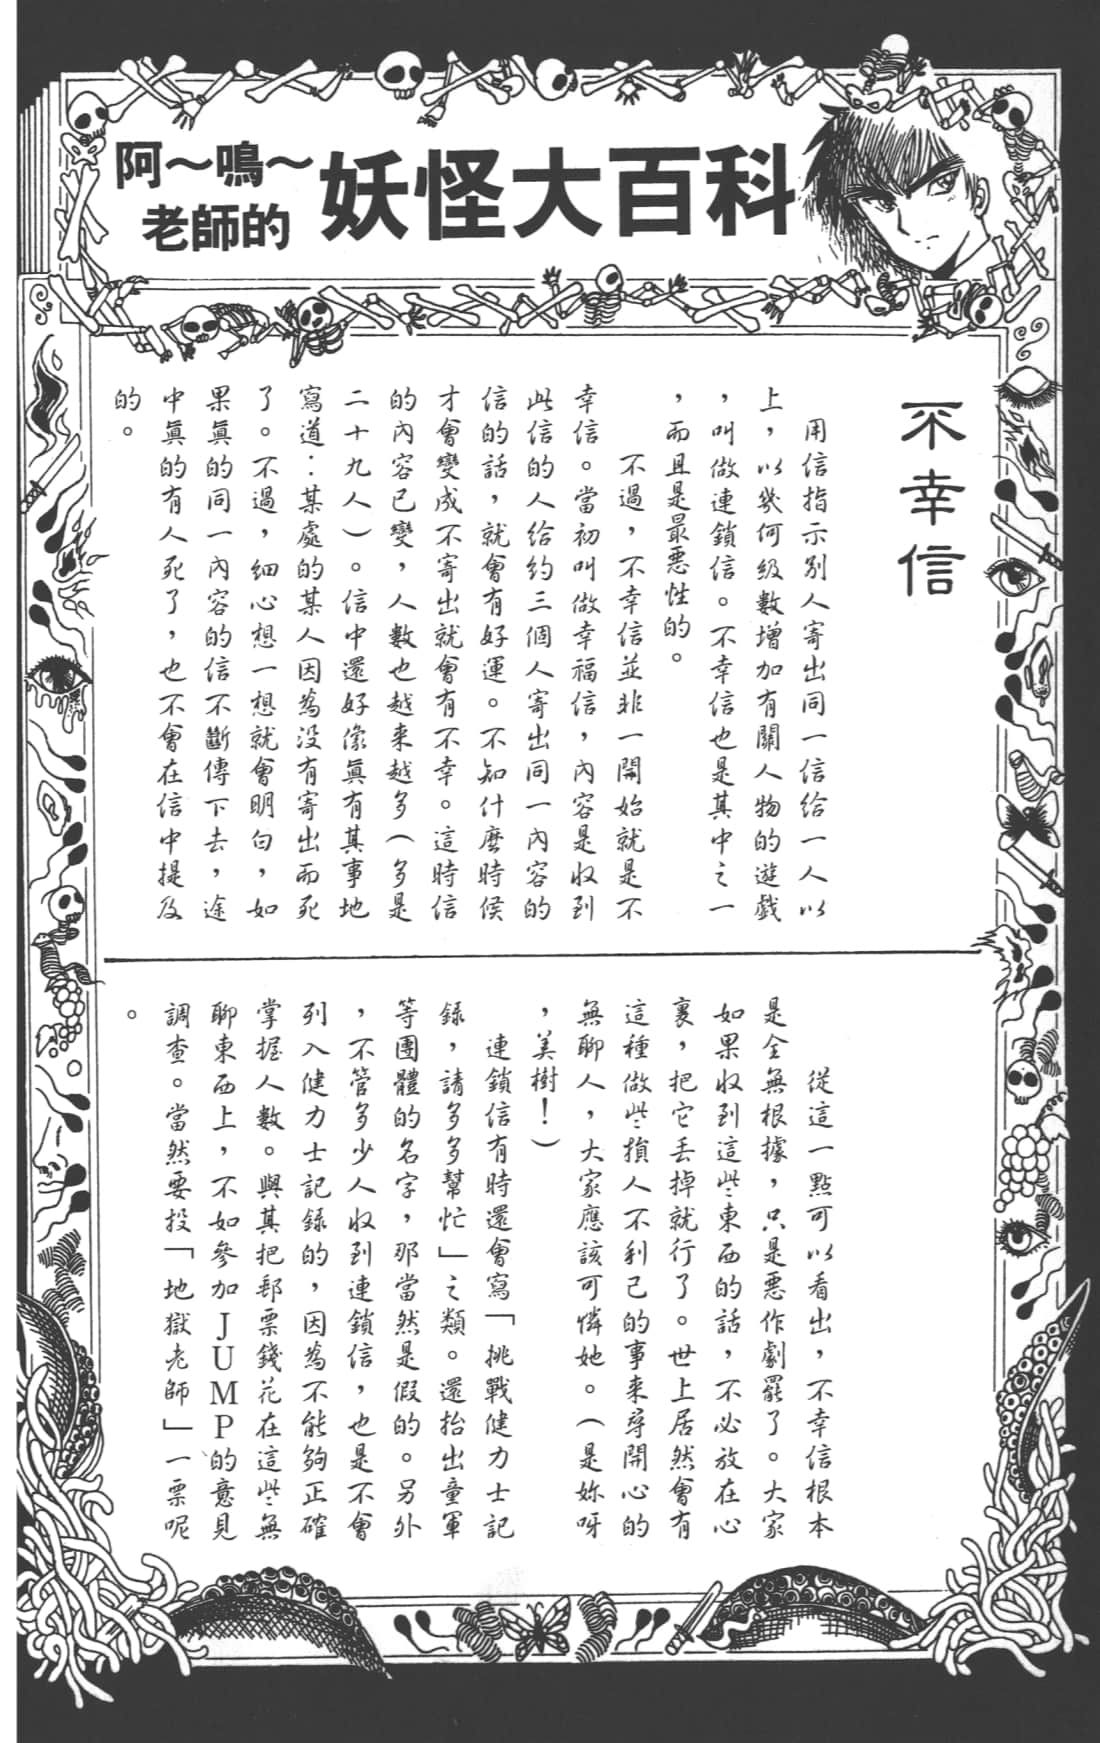 阿～鳴～
老師的
妖怪大百科
不幸信
用信指示別人寄出同一信給一人以
上，以幾何級數增加有關人物的遊戲
，叫做連鎖信。不幸信也是其中之一
，而且是最惡性的。
不過，不幸信並非一開始就是不
幸信。當初叫做幸福信，內容是收到
此信的人給約三個人寄出同一內容的
信的話，就會有好運。不知什麼時侯
才會變成不寄出就會有不幸。這時信
的內容已變，人數也越来越多（多是
二十九人）。信中還好像真有其事地
寫道：某處的某人因為没有寄出而死
了。不過，細心想一想就會明白，如
果真的同一內容的信不斷傳下去，途
中真的有人死了，也不會在信中提及
的。
從這一點可以看出，不幸信根本
是全無根據，只是惡作劇罷了。大家
如果收到這些東西的話，不必放在心
裏，把它丢掉就行了。世上居然會有
這種做些損人不利己的事来尋開心的
無聊人，大家應該可憐她。（是妳呀
，美樹！）
連鎖信有時還會寫「挑戰健力士記
録，請多多幫忙」之類。還抬出童軍
等團體的名字，那當然是假的。另外
，不管多少人收到連鎖信，也是不會
列入健力士記録的，因為不能夠正確
掌握人數。與其把郵票錢花在這些無
聊東西上，不如參加JUMP的意見
調查。當然要投「地獄老師」一票呢
。